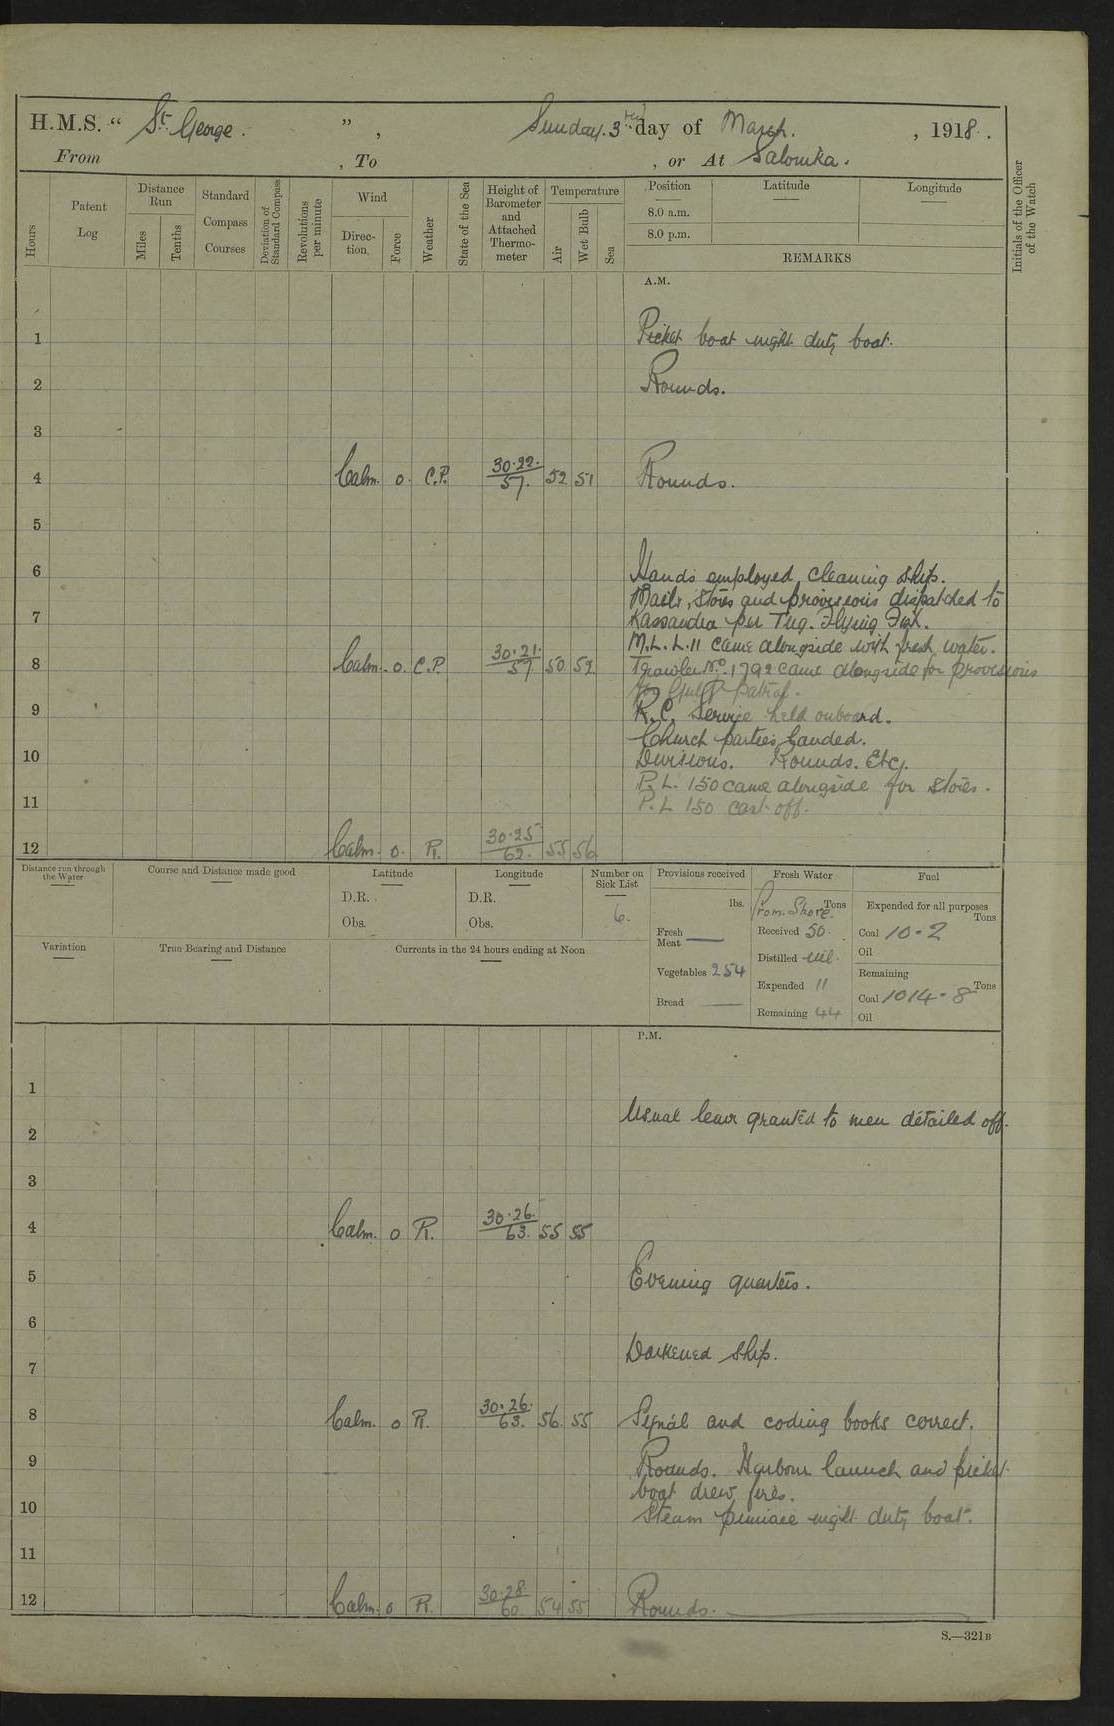 H.M.S. “ St. George. ” , Sunday. 3rd day of March. , 1918.
From , To , or At Salonika.
Hours
Patent Log
Distance Run
Miles
Tenths
Standard Compass Courses
Deviation of Standard Compass
Revolutions per minute
Wind
Direction
Force
Weather
State of the Sea
Height of Barometer and Attached Thermometer
Temperature
Air
Wet Bulb
Sea
Position
Latitude
Longitude
8.0 a.m.
8.0 p.m.
REMARKS
Initials of the Officer of the Watch
A.M.
1 Picket boat night duty boat.
2 Rounds.
3
4 Calm. 0. C.P. 30.22. 57. 52 51 Rounds.
5
6 Hands employed cleaning ship.
Mails, stores and provisions dispatched to
7 Kassandra per Tug. Flying Fox.
M.L. L.11 came alongside with fresh water.
8 Calm. 0. C.P. 30.21. 57 50 52 Trawler No. 1792 came alongside for provisions
for Gulf patrol.
9 R.C. Service held onboard.
Church parties landed.
10 Divisions. Rounds. Etc.
P.L. 150 came alongside for stores.
11 P.L 150 cast off.
12 Calm. 0. R. 30.25 62. 55 56
Distance run through the Water
Course and Distance made good
Latitude
D.R.
Obs.
Longitude
D.R.
Obs.
Number on Sick List
6.
Provisions received
lbs.
Fresh Meat —
Vegetables 254
Bread —
Fresh Water
From Shore. Tons
Received 50.
Distilled nil.
Expended 11
Remaining 44
Fuel
Expended for all purposes
Tons
Coal 10-2
Oil
Remaining
Tons
Coal 1014-8
Oil
Variation
True Bearing and Distance
Currents in the 24 hours ending at Noon
P.M.
1
Usual leave granted to men detailed off.
2
3
4 Calm. 0 R. 30.26. 63. 55 55
5 Evening quarters.
6
Darkened ship.
7
8 Calm. 0 R. 30.26. 63. 56. 55 Signal and coding books correct.
9 Rounds. Harbour launch and picket
boat drew fires.
10 Steam pinnace night duty boat.
11
12 Calm. 0 R. 30.28 60. 54 55 Rounds.
S.—321B